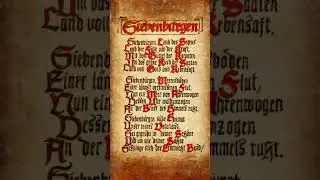 Siebenbürgen
Siebenbürgen, Land des Segens
Land der Fülle und der Kraft,
Mit dem Gürtel der Karpaten
Um das grüne Kleid der Saaten
Land voll Gold und Rebensaft.
Siebenbürgen, Meeresboden
Einer längst verflossnen Flut,
Nun ein Meer von Ährenwogen
Dessen Ufer waldumzogen
An der Brust des Himmels ruht.
Siebenbürgen süße Heimat
Unser teures Vaterland,
Sei gegrüßt in deiner Schöne
Und um alle deine Söhne
Schlinge sich der Eintracht Band!